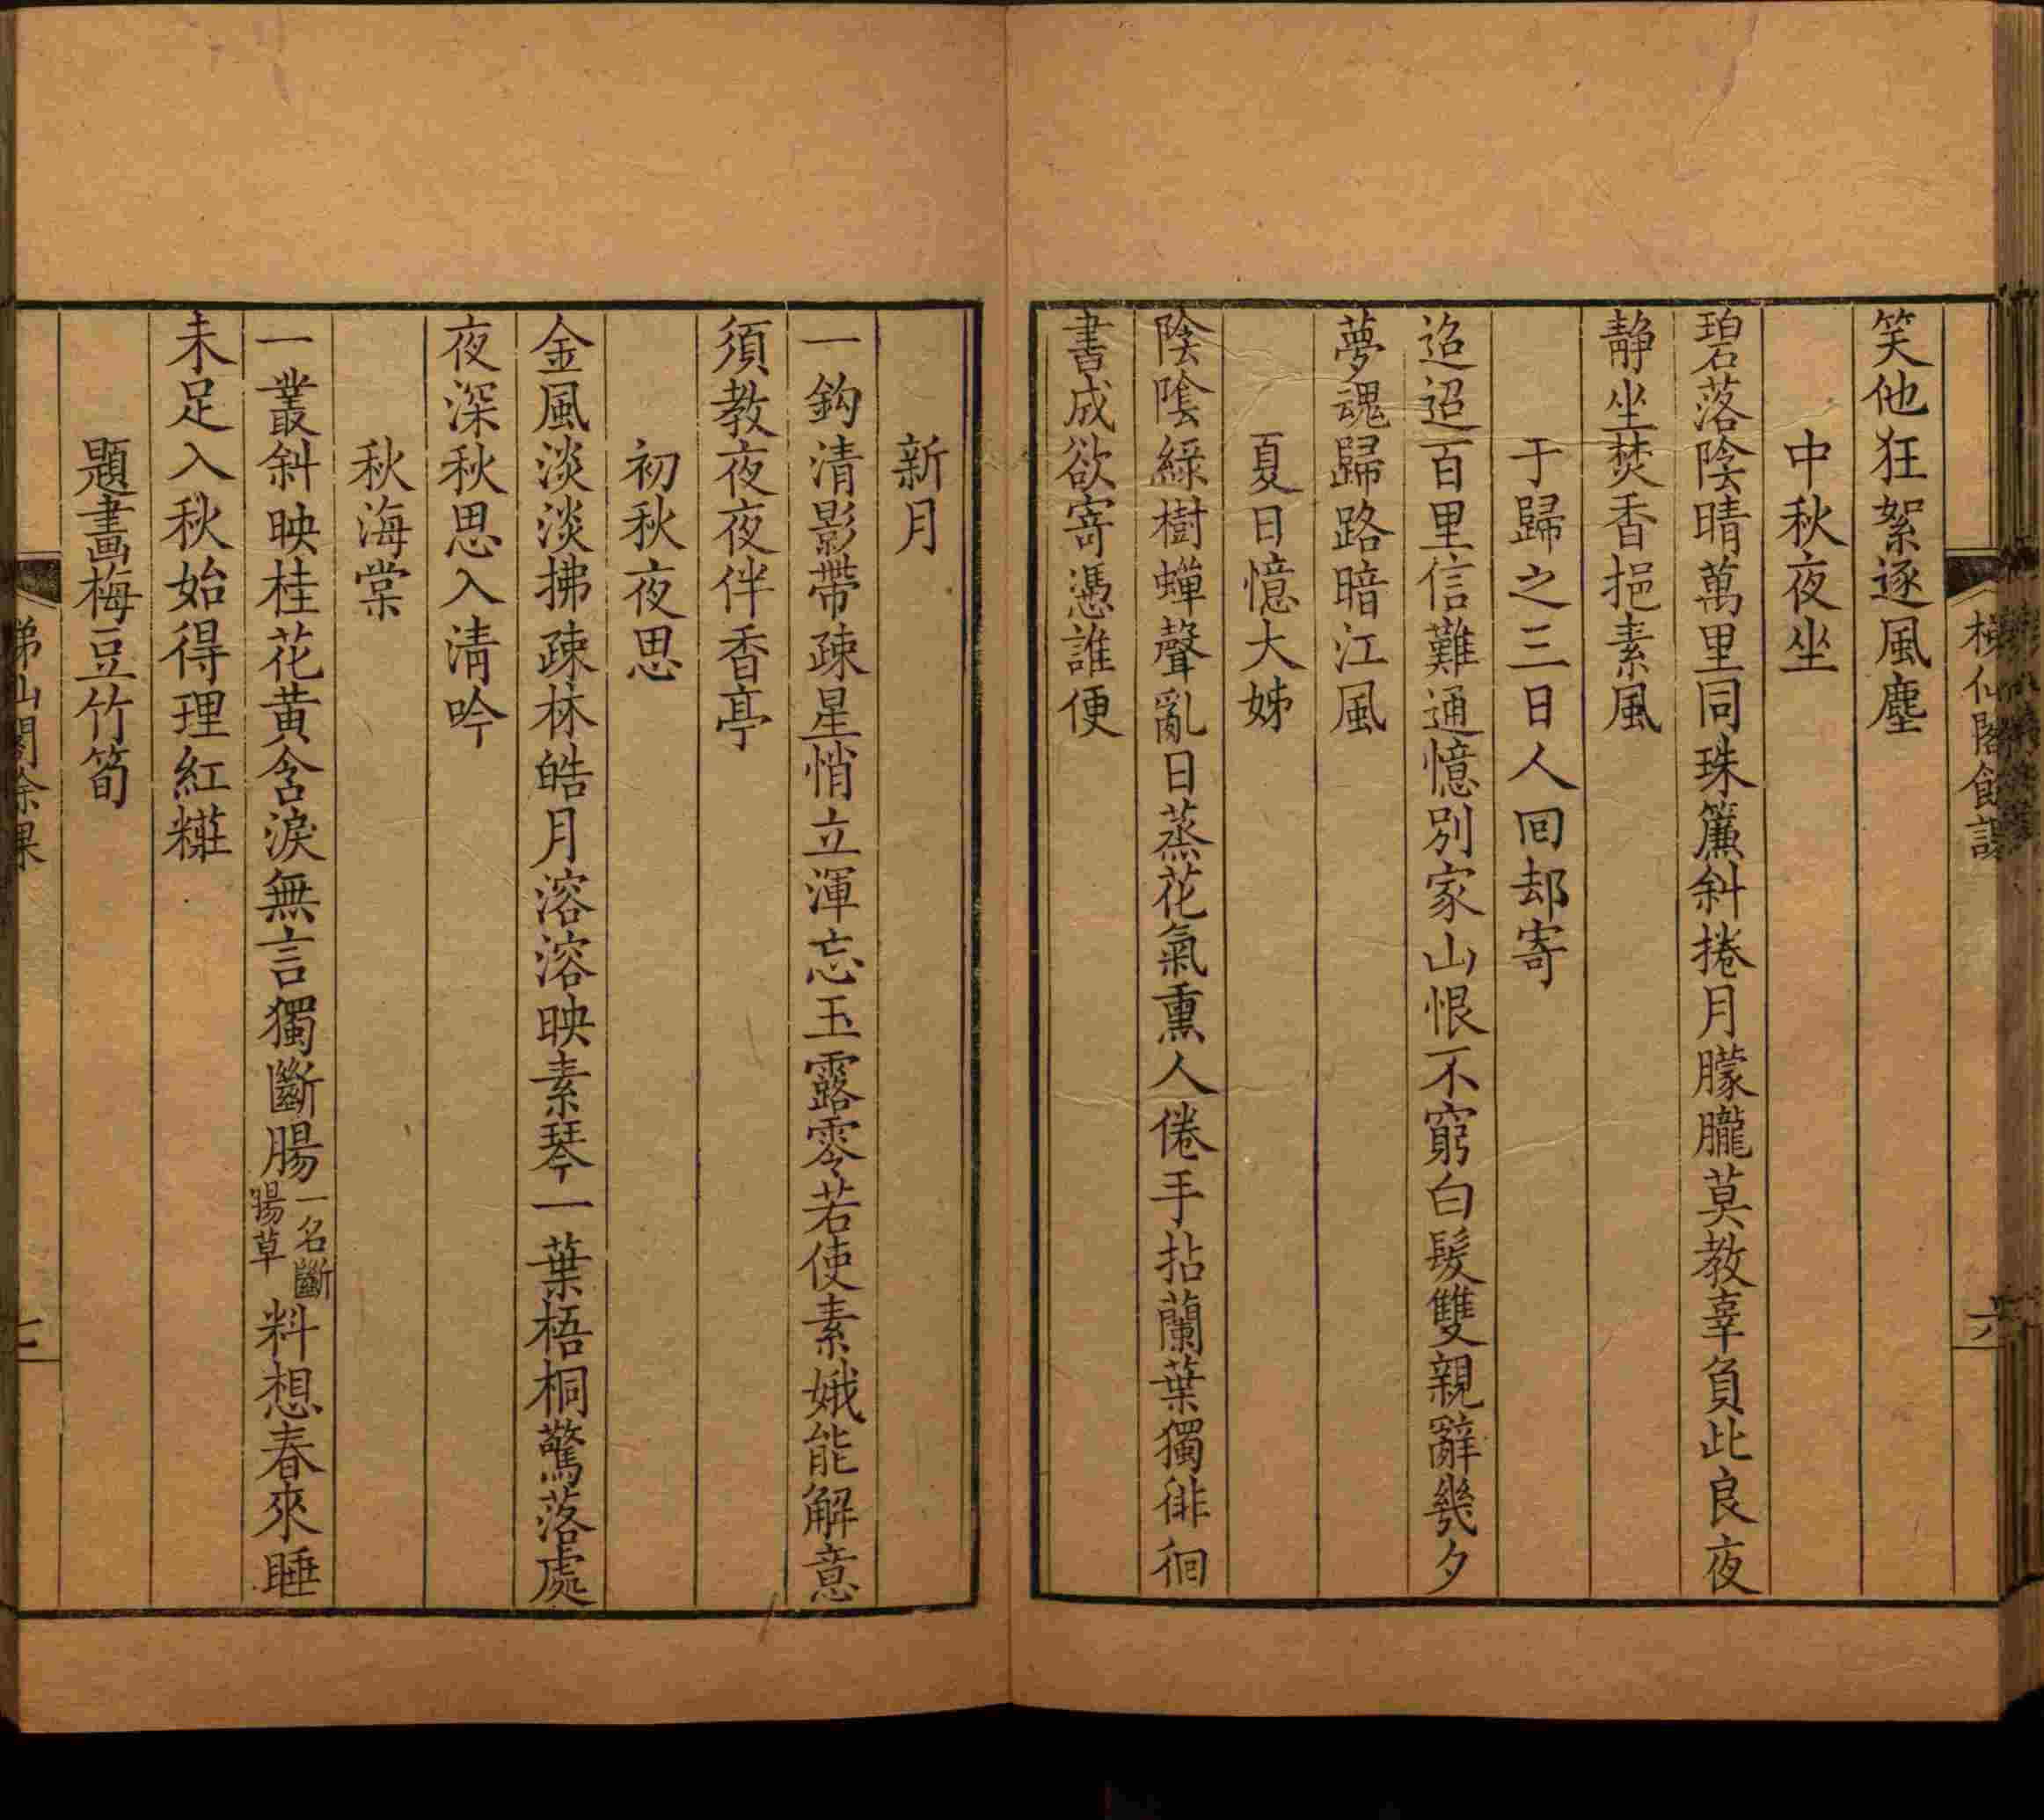 笑他狂絮逐風塵
中秋夜坐
碧落陰晴萬里同珠簾斜捲月朦朧莫教辜負此良夜
靜坐焚香挹素風
于歸之三日人回却寄
迢迢百里信難通憶別家山恨不窮白髮雙親辭幾夕
夢魂歸路暗江風
夏日憶大姊
陰陰綠樹蟬聲亂日蒸花氣熏人倦手拈蘭葉獨徘徊
書成欲寄憑誰便
新月
一鈎清影帶疎星悄立渾忘玉露零若使素娥能解意
須教夜夜伴香亭
初秋夜思
金風淡淡拂疎林皓月溶溶映素琴一葉梧桐驚落處
夜深秋思入清吟
秋海棠
一叢斜映桂花黃含淚無言獨斷腸一名斷腸草料想春來睡
未足入秋始得理紅糚
題畫梅豆竹筍